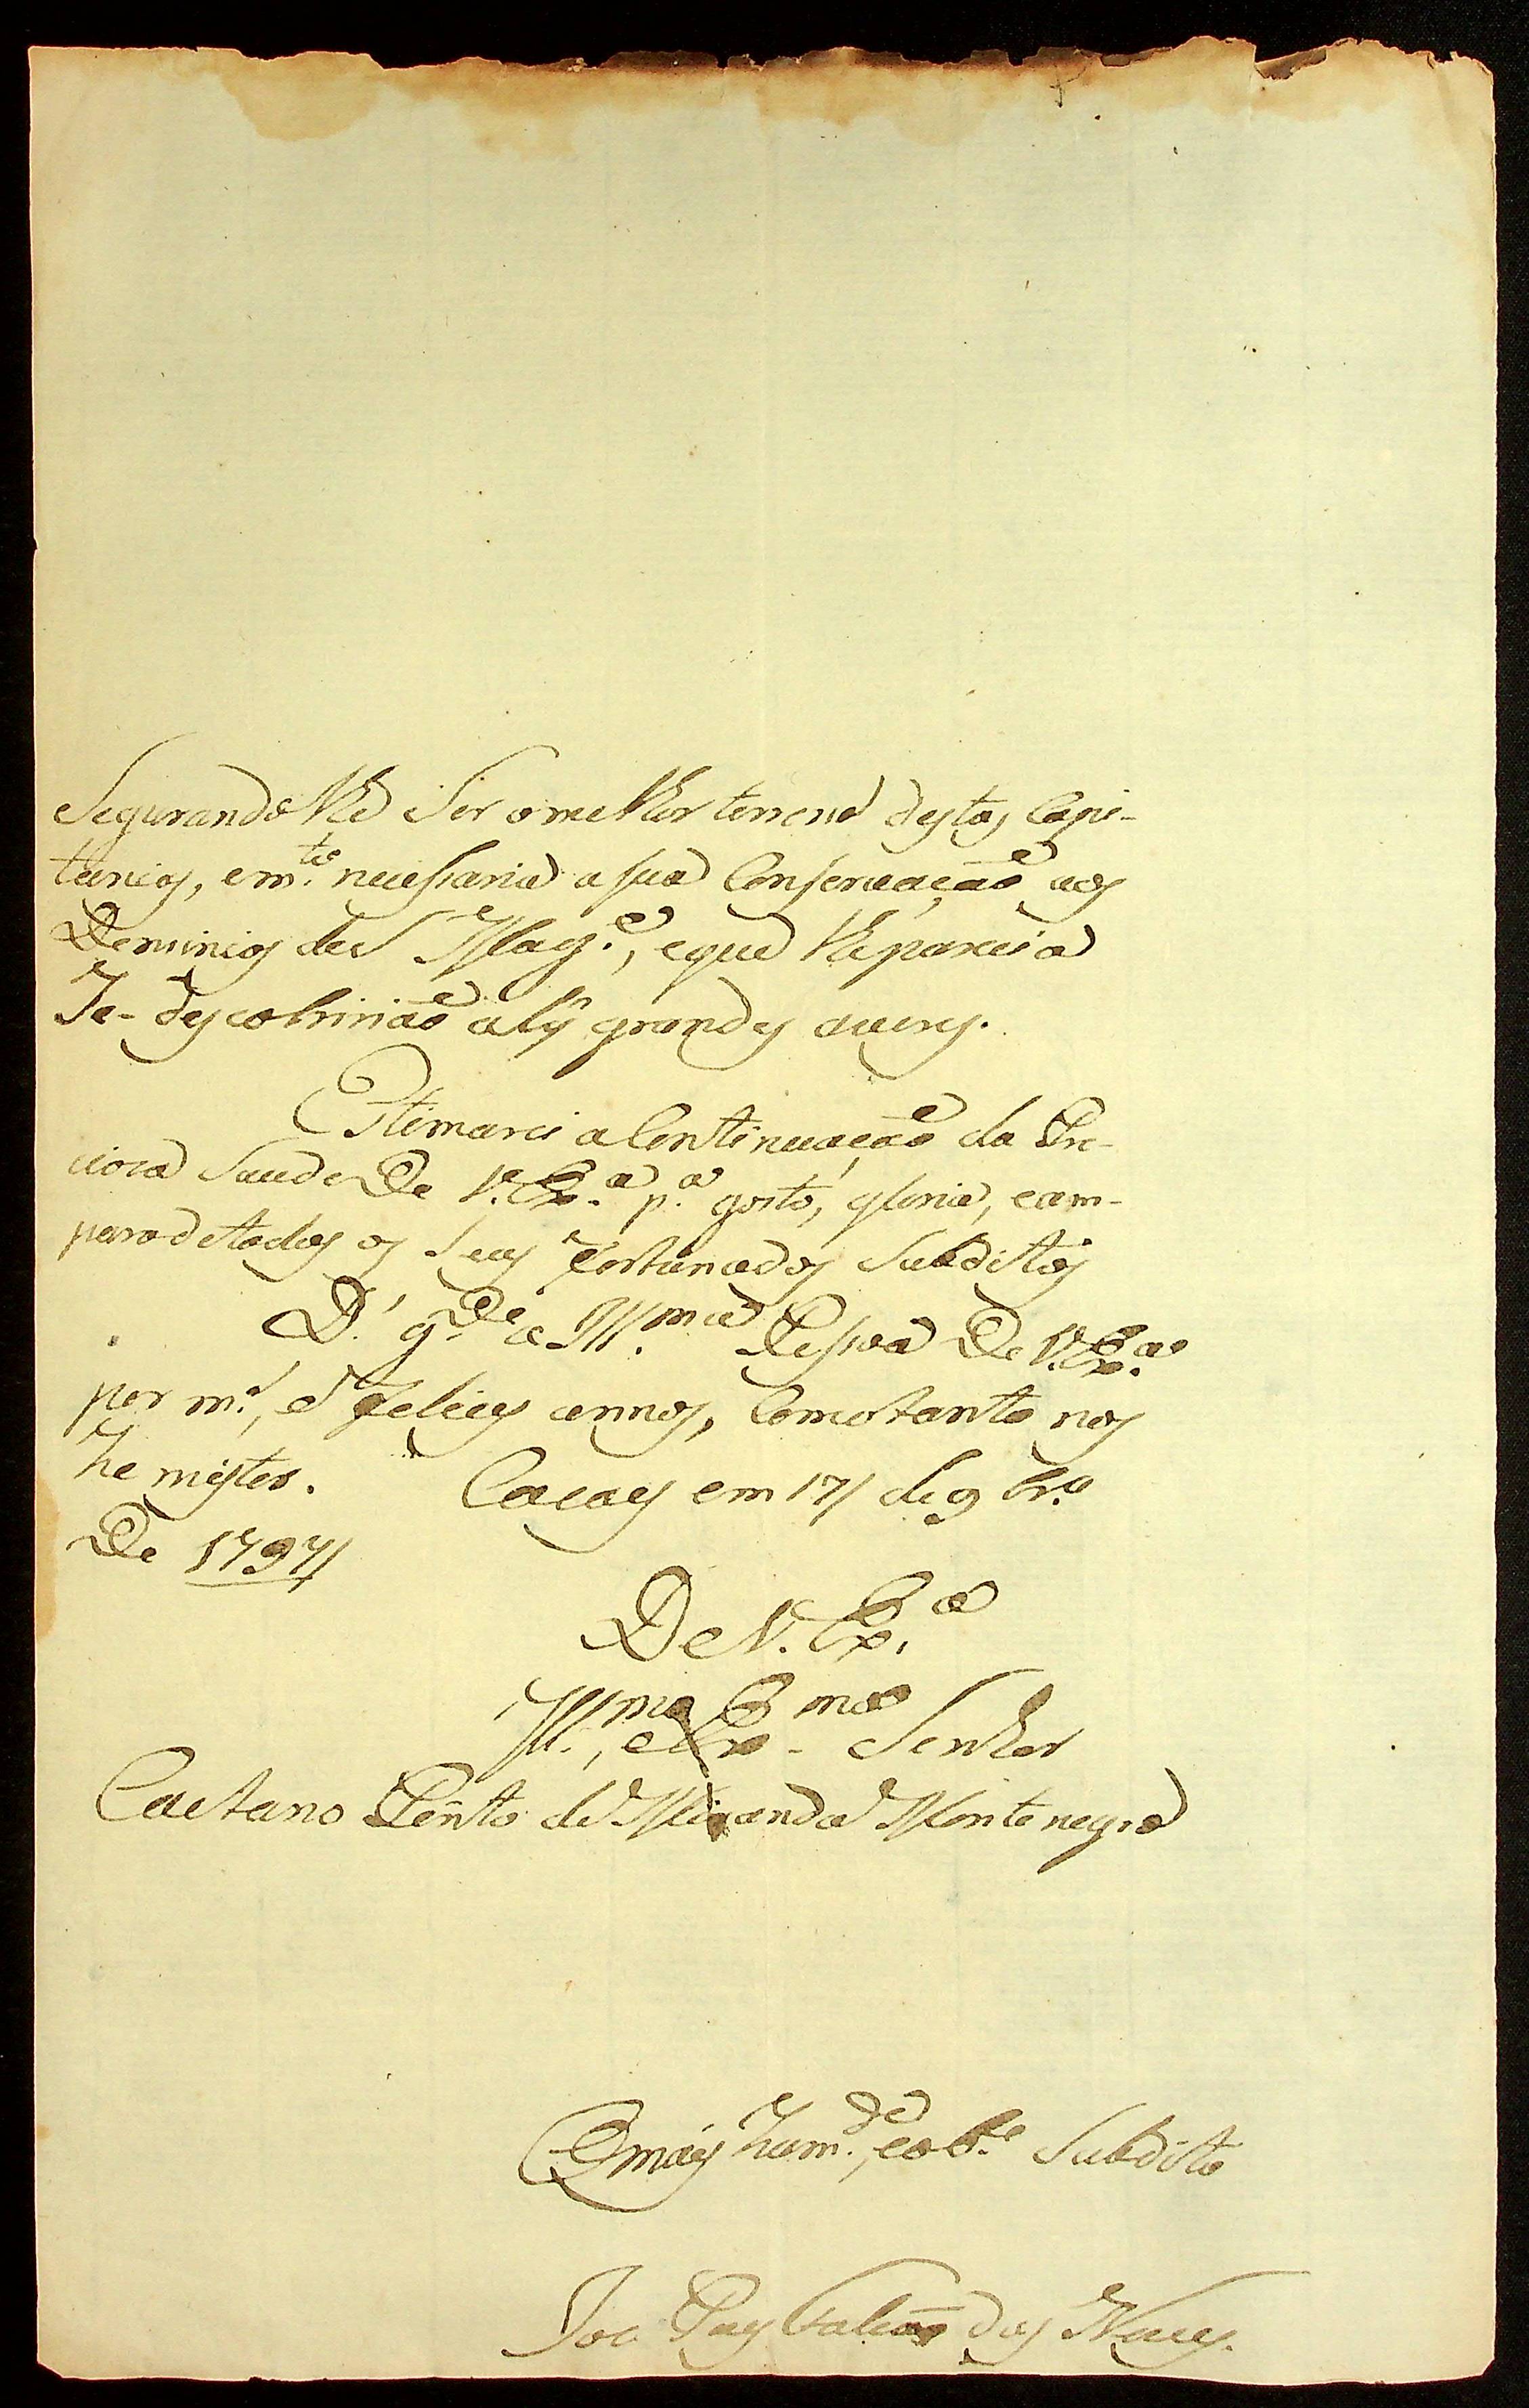 Segurandolhe Ser omelhor terreno destas Capi-
tanias, em.to necessaria asua Conservaçaõ aos
Dominios deS Mag.e, eque lheparecia
Se-descobririaõ alÿ grandes averes.
Estimarei aContinuaçaõ da Pre-
cioza Saude De V. Ex.a p.a gosto, gloria, eam-
parodetodos os Seus Fortunados Subditos
D.s g.De a Ill.ma Pessoa De V. Ex.a
por m.s, e felices annos, Comotanto nos
he mister. em 17/ de 9br.o
De 1797/
De V. Ex.a
Ill.mo, eEx.mo Senhor
Caetano Pinto de Miranda Montenegro
O mais hum.de, eob.e Subdito
Joa Leyte Galvaõ das Neves.